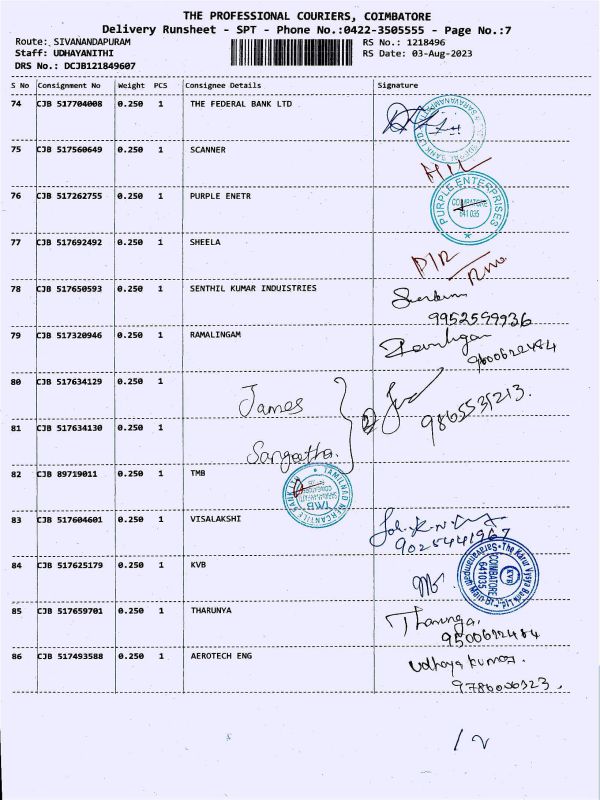 THE PROFESSIONAL COURIERS, COIMBATORE
Delivery Runsheet - SPT - Phone No.:0422-3505555 - Page No.:7
Route: SIVANANDAPURAM RS No.: 1218496
Staff: UDHAYANITHI RS Date: 03-Aug-2023
DRS No.: DCJB121849607
S No Consignment No Weight PCS Consignee Details Signature
74 CJB 517704008 0.250 1 THE FEDERAL BANK LTD
75 CJB 517560649 0.250 1 SCANNER
76 CJB 517262755 0.250 1 PURPLE ENETR
PURPLE ENTERPRISES
COIMBATORE
641 035
77 CJB 517692492 0.250 1 SHEELA
78 CJB 517650593 0.250 1 SENTHIL KUMAR INDUISTRIES
9952599936
79 CJB 517320946 0.250 1 RAMALINGAM
9600612484
80 CJB 517634129 0.250 1
James
9865531213.
81 CJB 517634130 0.250 1
Sangeetha.
82 CJB 89719011 0.250 1 TMB
TAMILNAD MERCANTILE BANK LTD
TMB
83 CJB 517604601 0.250 1 VISALAKSHI
9025441967
84 CJB 517625179 0.250 1 KVB
The Karur Vysya Bank Ltd
KVB
COIMBATORE
641035
85 CJB 517659701 0.250 1 THARUNYA
9500612484
86 CJB 517493588 0.250 1 AEROTECH ENG
Udhaya kumar.
9786006323.